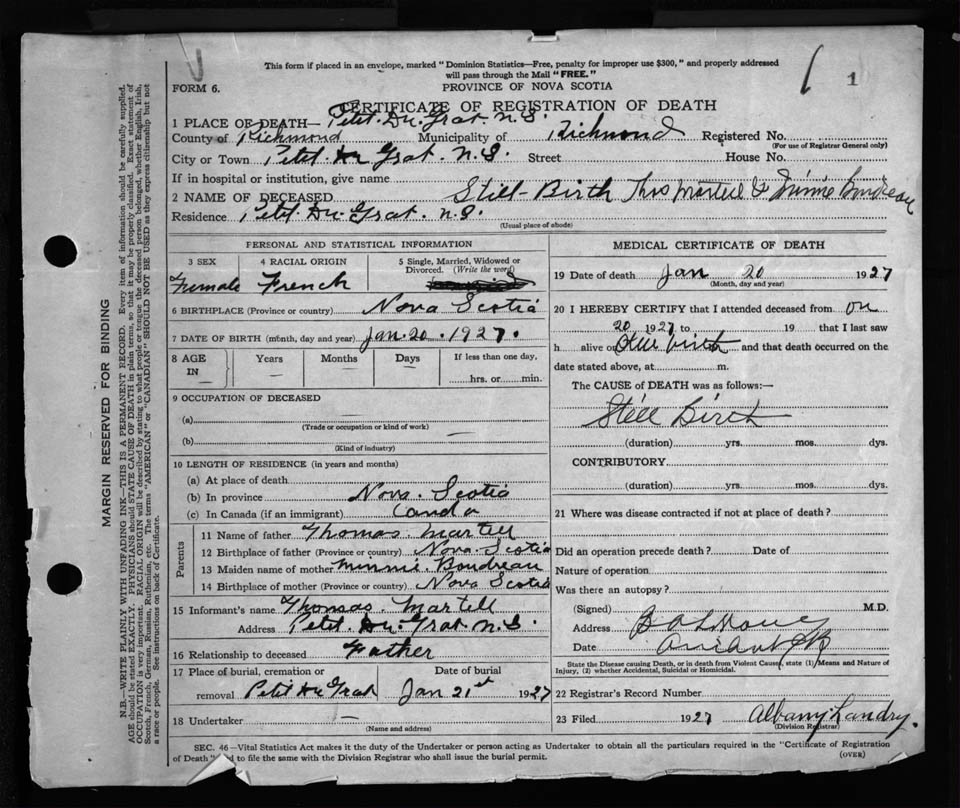 This form if placed in an envelope, marked "Dominion Statistics—Free, penalty for improper use $300," and properly addressed
will pass through the Mail "FREE."
FORM 6.
PROVINCE OF NOVA SCOTIA
1
CERTIFICATE OF REGISTRATION OF DEATH
1 PLACE OF DEATH— Petit. Du. Grat. N.S.
County of Richmond Municipality of Richmond Registered No.
(For use of Registrar General only)
City or Town Petit. Du Grat. N.S. Street House No.
If in hospital or institution, give name
2 NAME OF DECEASED Still-Birth Thos Martell & Minnie Boudreau
Residence Petit. Du. Grat. N.S.
(Usual place of abode)
PERSONAL AND STATISTICAL INFORMATION
3 SEX 4 RACIAL ORIGIN 5 Single, Married, Widowed or Divorced. (Write the word)
Female French
6 BIRTHPLACE (Province or country) Nova Scotia
7 DATE OF BIRTH (month, day and year) Jan. 20. 1927.
8 AGE IN Years Months Days If less than one day,
— — — — hrs. or min.
9 OCCUPATION OF DECEASED
(a)
(Trade or occupation or kind of work)
(b) —
(Kind of industry)
10 LENGTH OF RESIDENCE (in years and months)
(a) At place of death
(b) In province Nova. Scotia
(c) In Canada (if an immigrant) Canda
Parents
11 Name of father Thomas. Martell
12 Birthplace of father (Province or country) Nova. Scotia
13 Maiden name of mother Minnie Boudreau
14 Birthplace of mother (Province or country) Nova Scotia
15 Informant's name Thomas. Martell
Address Petit. Du. Grat. N.S.
16 Relationship to deceased Father
17 Place of burial, cremation or removal Petit Du Grat Date of burial Jan 21st 1927
18 Undertaker —
(Name and address)
MEDICAL CERTIFICATE OF DEATH
19 Date of death Jan 20 1927
(Month, day and year)
20 I HEREBY CERTIFY that I attended deceased from on
20 1927 to 19 that I last saw
h alive on birth and that death occurred on the
date stated above, at m.
The CAUSE of DEATH was as follows:—
Still Birth
(duration) yrs. mos. dys.
CONTRIBUTORY
(duration) yrs. mos. dys.
21 Where was disease contracted if not at place of death?
Did an operation precede death? Date of
Nature of operation
Was there an autopsy?
(Signed) M.D.
Address
Date
State the Disease causing Death, or in death from Violent Causes, state (1) Means and Nature of
Injury, (2) whether Accidental, Suicidal or Homicidal.
22 Registrar's Record Number
23 Filed 1927 Albany Landry.
(Division Registrar)
SEC. 46—Vital Statistics Act makes it the duty of the Undertaker or person acting as Undertaker to obtain all the particulars required in the "Certificate of Registration
of Death" and to file the same with the Division Registrar who shall issue the burial permit.
(OVER)
MARGIN RESERVED FOR BINDING
N.B.—WRITE PLAINLY WITH UNFADING INK—THIS IS A PERMANENT RECORD. Every item of information should be carefully supplied.
AGE should be stated EXACTLY. PHYSICIANS should STATE CAUSE OF DEATH in plain terms, so that it may be properly classified. Exact statement of
OCCUPATION is very important. RACIAL ORIGIN will be described by stating to what people or tongue the deceased person belonged, whether English, Irish,
Scotch, French, German, Russian, Ruthenian, etc. The terms "AMERICAN" or "CANADIAN" SHOULD NOT BE USED as they express citizenship but not
a race or people. See instructions on back of Certificate.